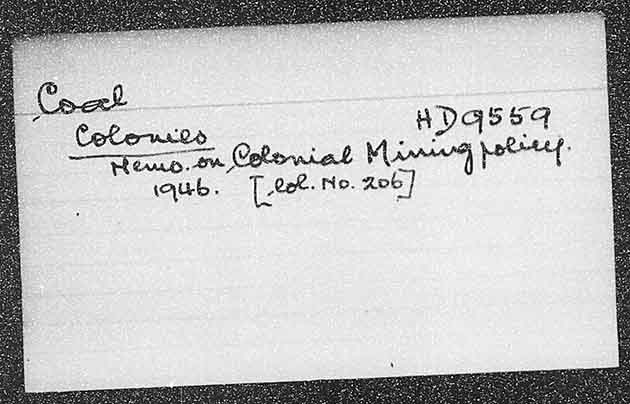 Coal
Colonies HD9559
Memo. on Colonial Mining policy.
1946. [Col. No. 206]